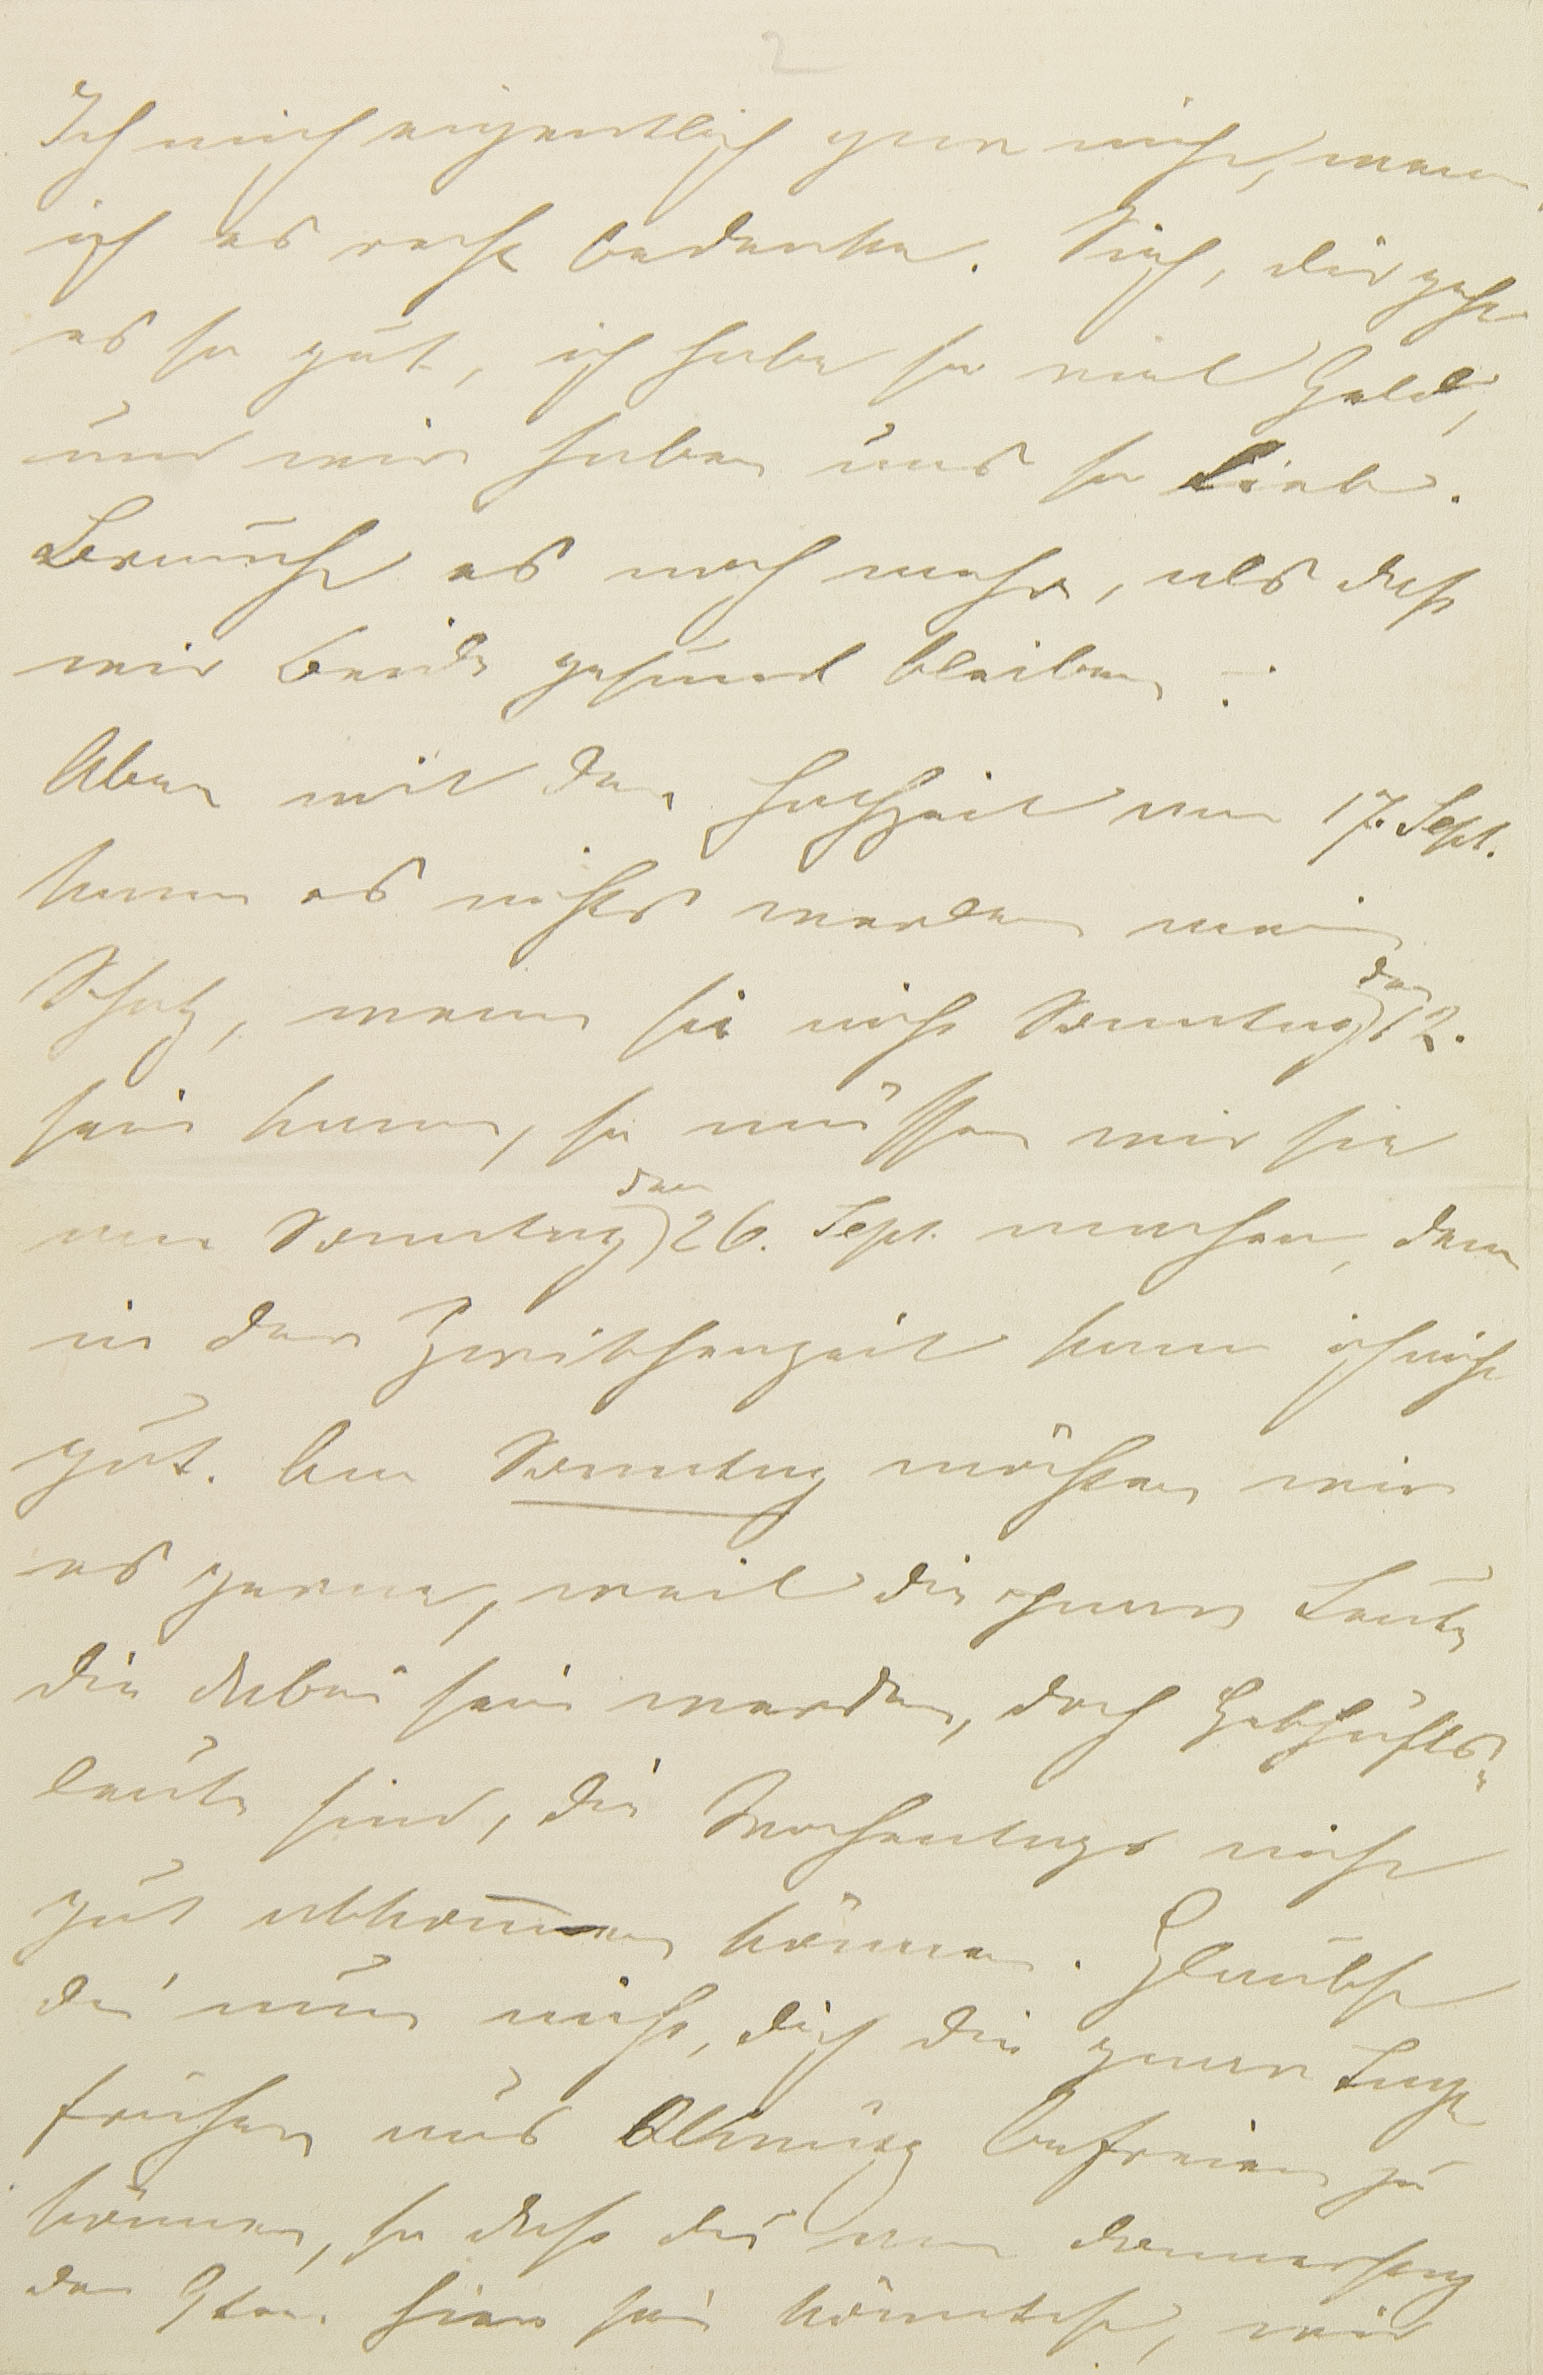 2
Ich mich eigentlich gar nicht, wenn
ich es recht bedenke. Sieh, dir geht
es so gut, ich habe so viel Geld,
und wir haben uns so lieb.
Braucht es noch mehr, als daß
wir beide gesund bleiben –.
Aber mit der Hochzeit am 17. Sept.
kann es nichts werden mein
Schatz, wenn sie nicht Sonntag den 12.
sein kann, so müssen wir sie
am Sonntag den 26. Sept. machen, denn
in der Zwischenzeit kann ich nicht
gut. Am Sonntag möchten wir
es gerne, weil die paar Leute
die dabei sein werden, doch Geschäfts-
leute sind, die Wochentags nicht
gut abkommen können. Glaubst
du nun nicht, dich die paar Tage
früher aus Olmütz befreien zu
können, so daß du am Donnerstag
den 9ten hier sein könntest, wir